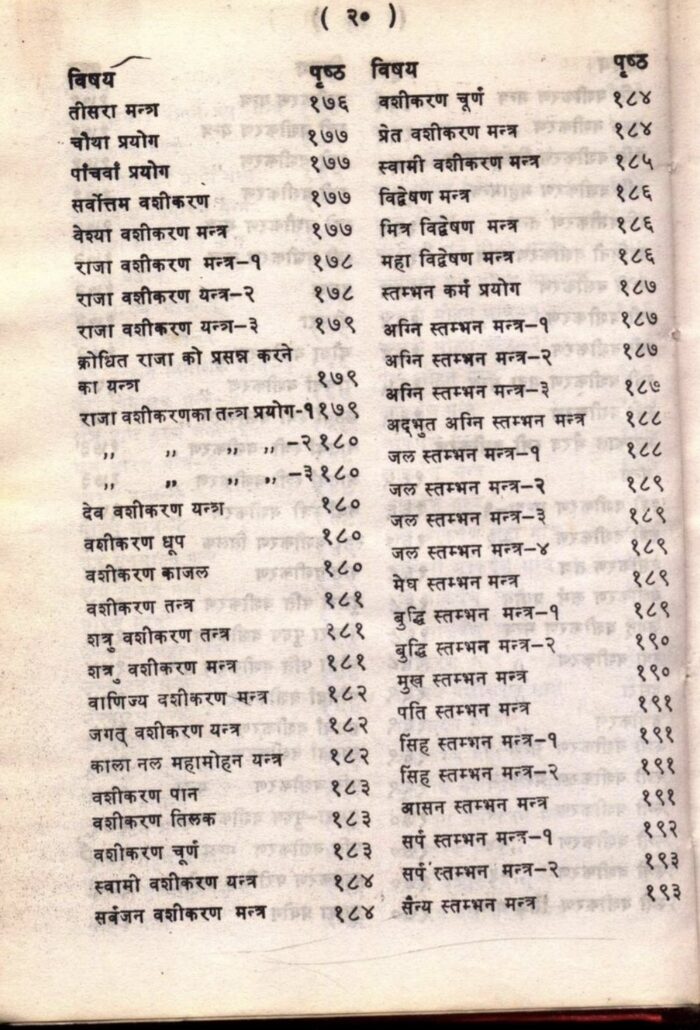 ( २० )
विषय पृष्ठ
तीसरा मन्त्र १७६
चौथा प्रयोग १७७
पांचवां प्रयोग १७७
सर्वोत्तम वशीकरण १७७
वेश्या वशीकरण मन्त्र १७७
राजा वशीकरण मन्त्र-१ १७८
राजा वशीकरण यन्त्र-२ १७८
राजा वशीकरण यन्त्र-३ १७९
क्रोधित राजा को प्रसन्न करने
का यन्त्र १७९
राजा वशीकरणका तन्त्र प्रयोग-१ १७९
,, ,, ,, ,, -२ १८०
,, ,, ,, ,, -३ १८०
देव वशीकरण यन्त्र १८०
वशीकरण धूप १८०
वशीकरण काजल १८०
वशीकरण तन्त्र १८१
शत्रु वशीकरण तन्त्र १८१
शत्रु वशीकरण मन्त्र १८१
वाणिज्य वशीकरण मन्त्र १८२
जगत् वशीकरण यन्त्र १८२
काला नल महामोहन यन्त्र १८२
वशीकरण पान १८३
वशीकरण तिलक १८३
वशीकरण चूर्ण १८३
स्वामी वशीकरण यन्त्र १८४
सर्वजन वशीकरण मन्त्र १८४
विषय पृष्ठ
वशीकरण चूर्ण १८४
प्रेत वशीकरण मन्त्र १८४
स्वामी वशीकरण मन्त्र १८५
विद्वेषण मन्त्र १८६
मित्र विद्वेषण मन्त्र १८६
महा विद्वेषण मन्त्र १८६
स्तम्भन कर्म प्रयोग १८७
अग्नि स्तम्भन मन्त्र-१ १८७
अग्नि स्तम्भन मन्त्र-२ १८७
अग्नि स्तम्भन मन्त्र-३ १८७
अद्भुत अग्नि स्तम्भन मन्त्र १८८
जल स्तम्भन मन्त्र-१ १८८
जल स्तम्भन मन्त्र-२ १८९
जल स्तम्भन मन्त्र-३ १८९
जल स्तम्भन मन्त्र-४ १८९
मेघ स्तम्भन मन्त्र १८९
बुद्धि स्तम्भन मन्त्र-१ १८९
बुद्धि स्तम्भन मन्त्र-२ १९०
मुख स्तम्भन मन्त्र १९०
पति स्तम्भन मन्त्र १९१
सिंह स्तम्भन मन्त्र-१ १९१
सिंह स्तम्भन मन्त्र-२ १९१
आसन स्तम्भन मन्त्र १९१
सर्प स्तम्भन मन्त्र-१ १९२
सर्प स्तम्भन मन्त्र-२ १९३
सैन्य स्तम्भन मन्त्र १९३